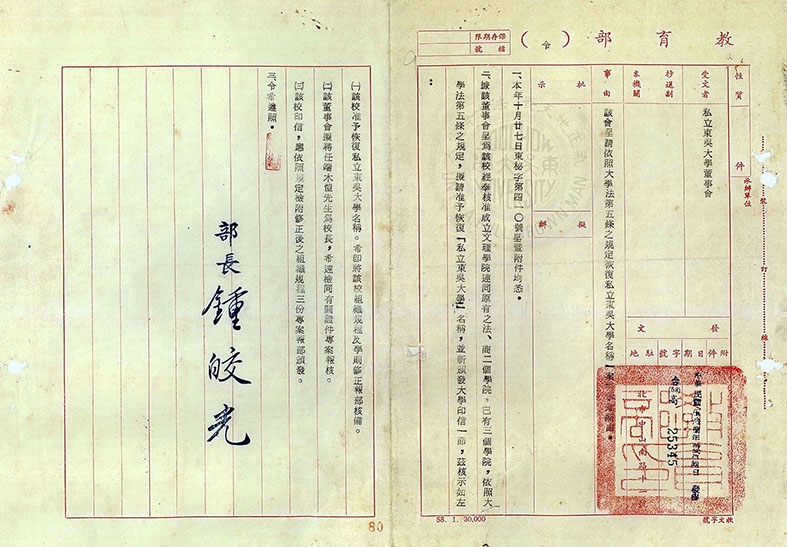 教育部（令）
保存期限
檔號
性質
件
承辦單位
受文者
私立東吳大學董事會
抄送副本機關
事由
該會呈請依照大學法第五條之規定恢復私立東吳大學名稱一案
批示
擬辦
發文
附件
日期
字號
駐地
台(58)高
25345
一、本年十月廿七日東秘字第四一〇號呈暨附件均悉。
二、據該董事會呈為該校經奉核准成立文理學院連同原有之法、商二個學院，已有三個學院，依照大
學法第五條之規定，擬請准予恢復「私立東吳大學」名稱，並祈頒發大學印信一節，茲核示如左
：
㈠該校准予恢復私立東吳大學名稱。希即將該校組織規程及學則修正報部核備。
㈡該董事會擬聘任端木愷先生為校長，希速檢同有關證件專案報核。
㈢該校印信，應依照規定檢附修正後之組織規程三份專案報部頒發。
三、令希遵照。
部長 鍾皎光
裝訂線
58. 1. 30,000
收文字號
80